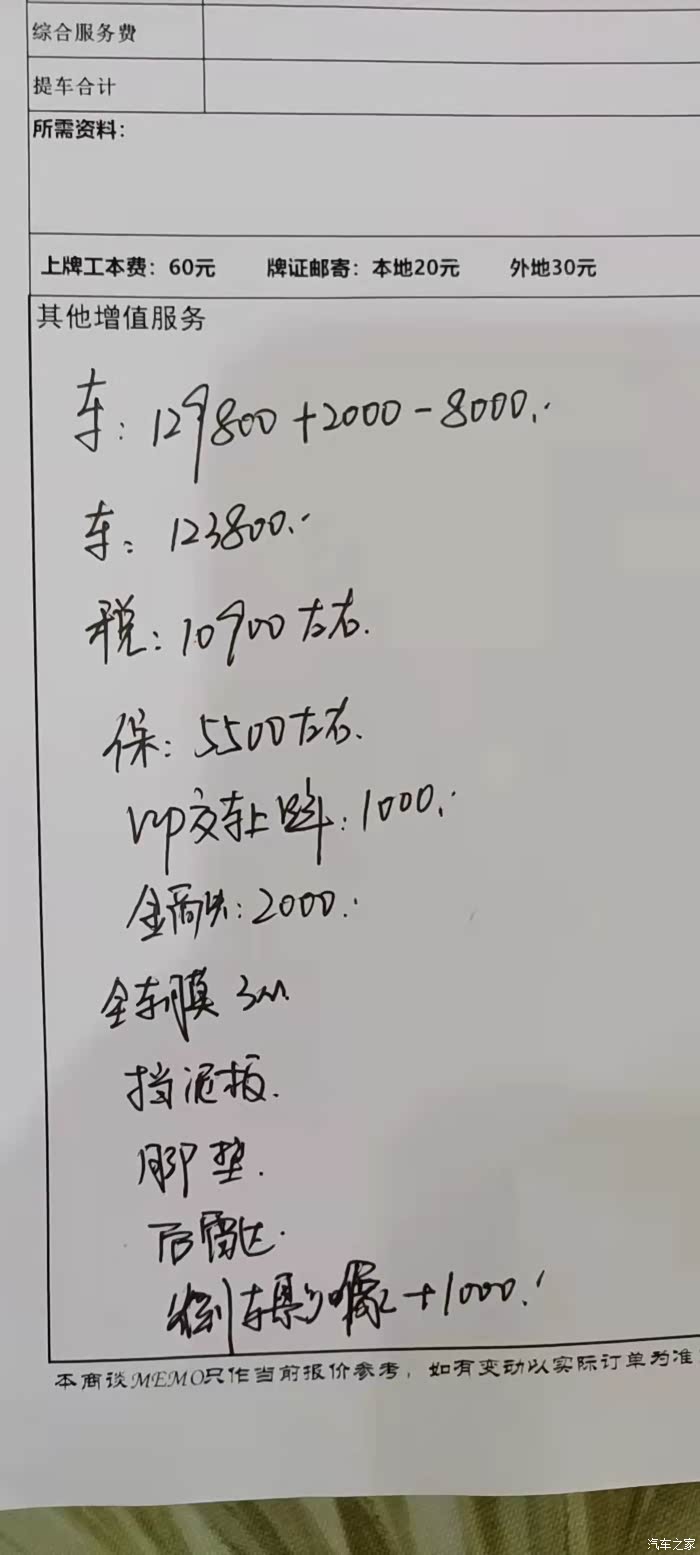 综合服务费
提车合计
所需资料：
上牌工本费：60元 牌证邮寄：本地20元 外地30元
其他增值服务
车：129800+2000-8000.
车：123800.
税：10900左右.
保：5500左右.
VIP交车上牌：1000.
金融：2000.
全车膜 3M
挡泥板.
脚垫.
后雷达.
倒车影像+1000.
本商谈MEMO只作当前报价参考，如有变动以实际订单为准
汽车之家